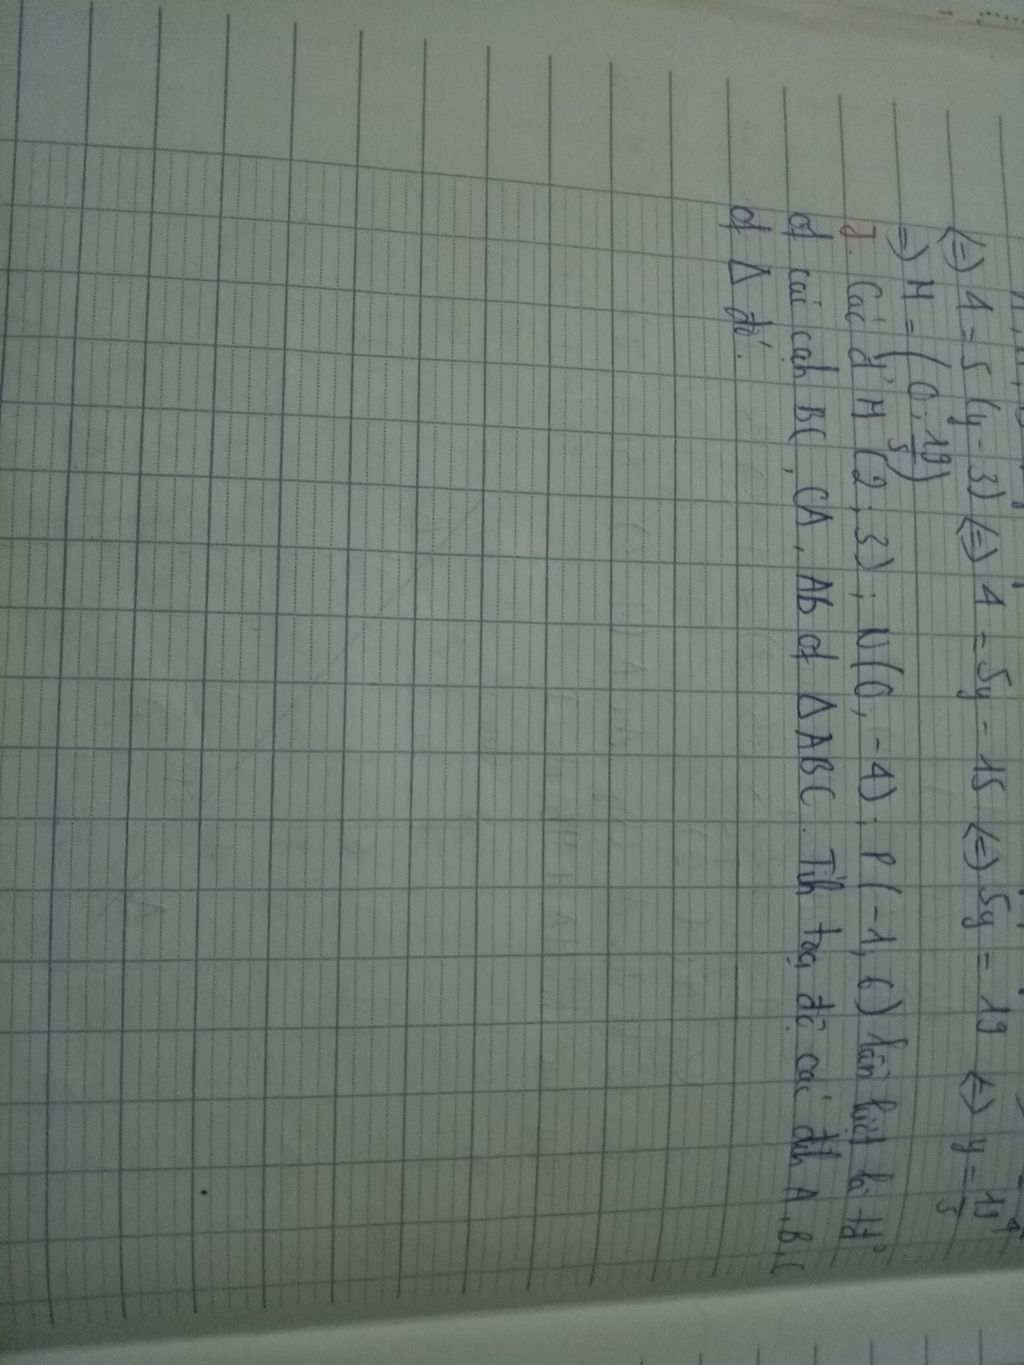 (=) 4 = 5 (y - 3) (=) 4 = 5y - 15 (=) 5y = 19 (=) y = 19/5
=) M = (0; 19/5)
d. Các đ' M (2; 3); N (0; -4); P (-1; 6) lần lượt là tđ'
of các cạh BC, CA, AB of Δ ABC. Tíh toạ độ các đỉh A, B, C
of Δ đó.